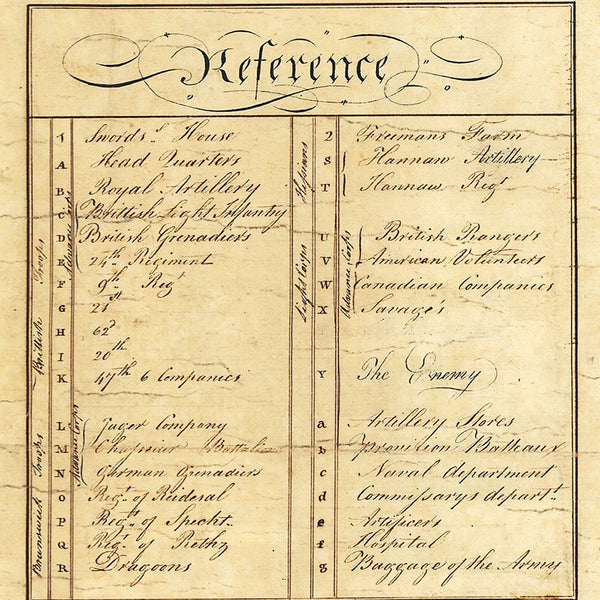 Reference
1 Swords's House
A Head Quarters
B Royal Artillery
C Brittish Light Infantry
D British Grenadiers
E 24th Regiment
F 9th Regt
G 21st
H 62d
I 20th
K 47th 6 Companies
Brittish Troops
Advance Corps
L Jager Company
M Chasseior Battalion
N German Grenadiers
O Regt. of Reidesal
P Regt. of Specht
Q Regt. of Rethz
R Dragoons
Brunswick Troops
Advance Corps
2 Freemans Farm
S Hannaw Artillery
T Hannaw Regt
Hessians
U British Rangers
V American Volunteers
W Canadian Companies
X Savage's
Light Corps
Advance Corps
Y The Enemy
a Artillery Stores
b Provision Batteaux
c Naval department
d Commissarys depart.t
e Artificers
f Hospital
g Baggage of the Army